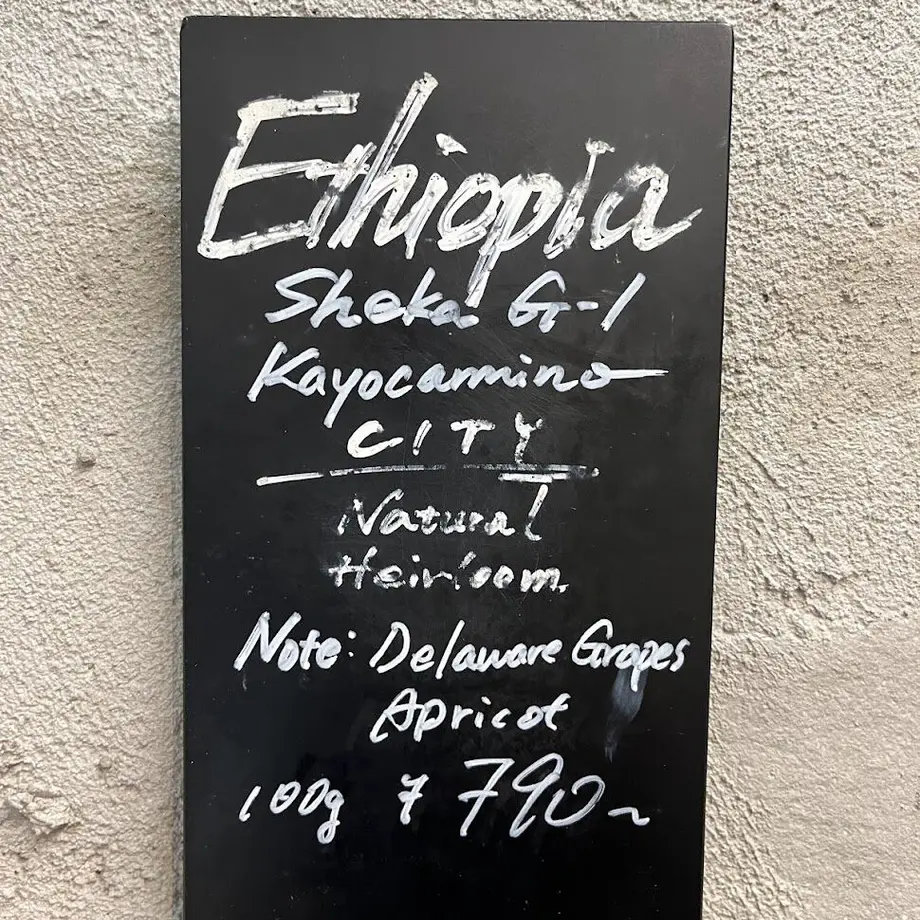 Ethiopia
Sheka G-1
Kayocamino
CITY
Natural
Heirloom
Note: Delaware Grapes
Apricot
100g ¥ 790~